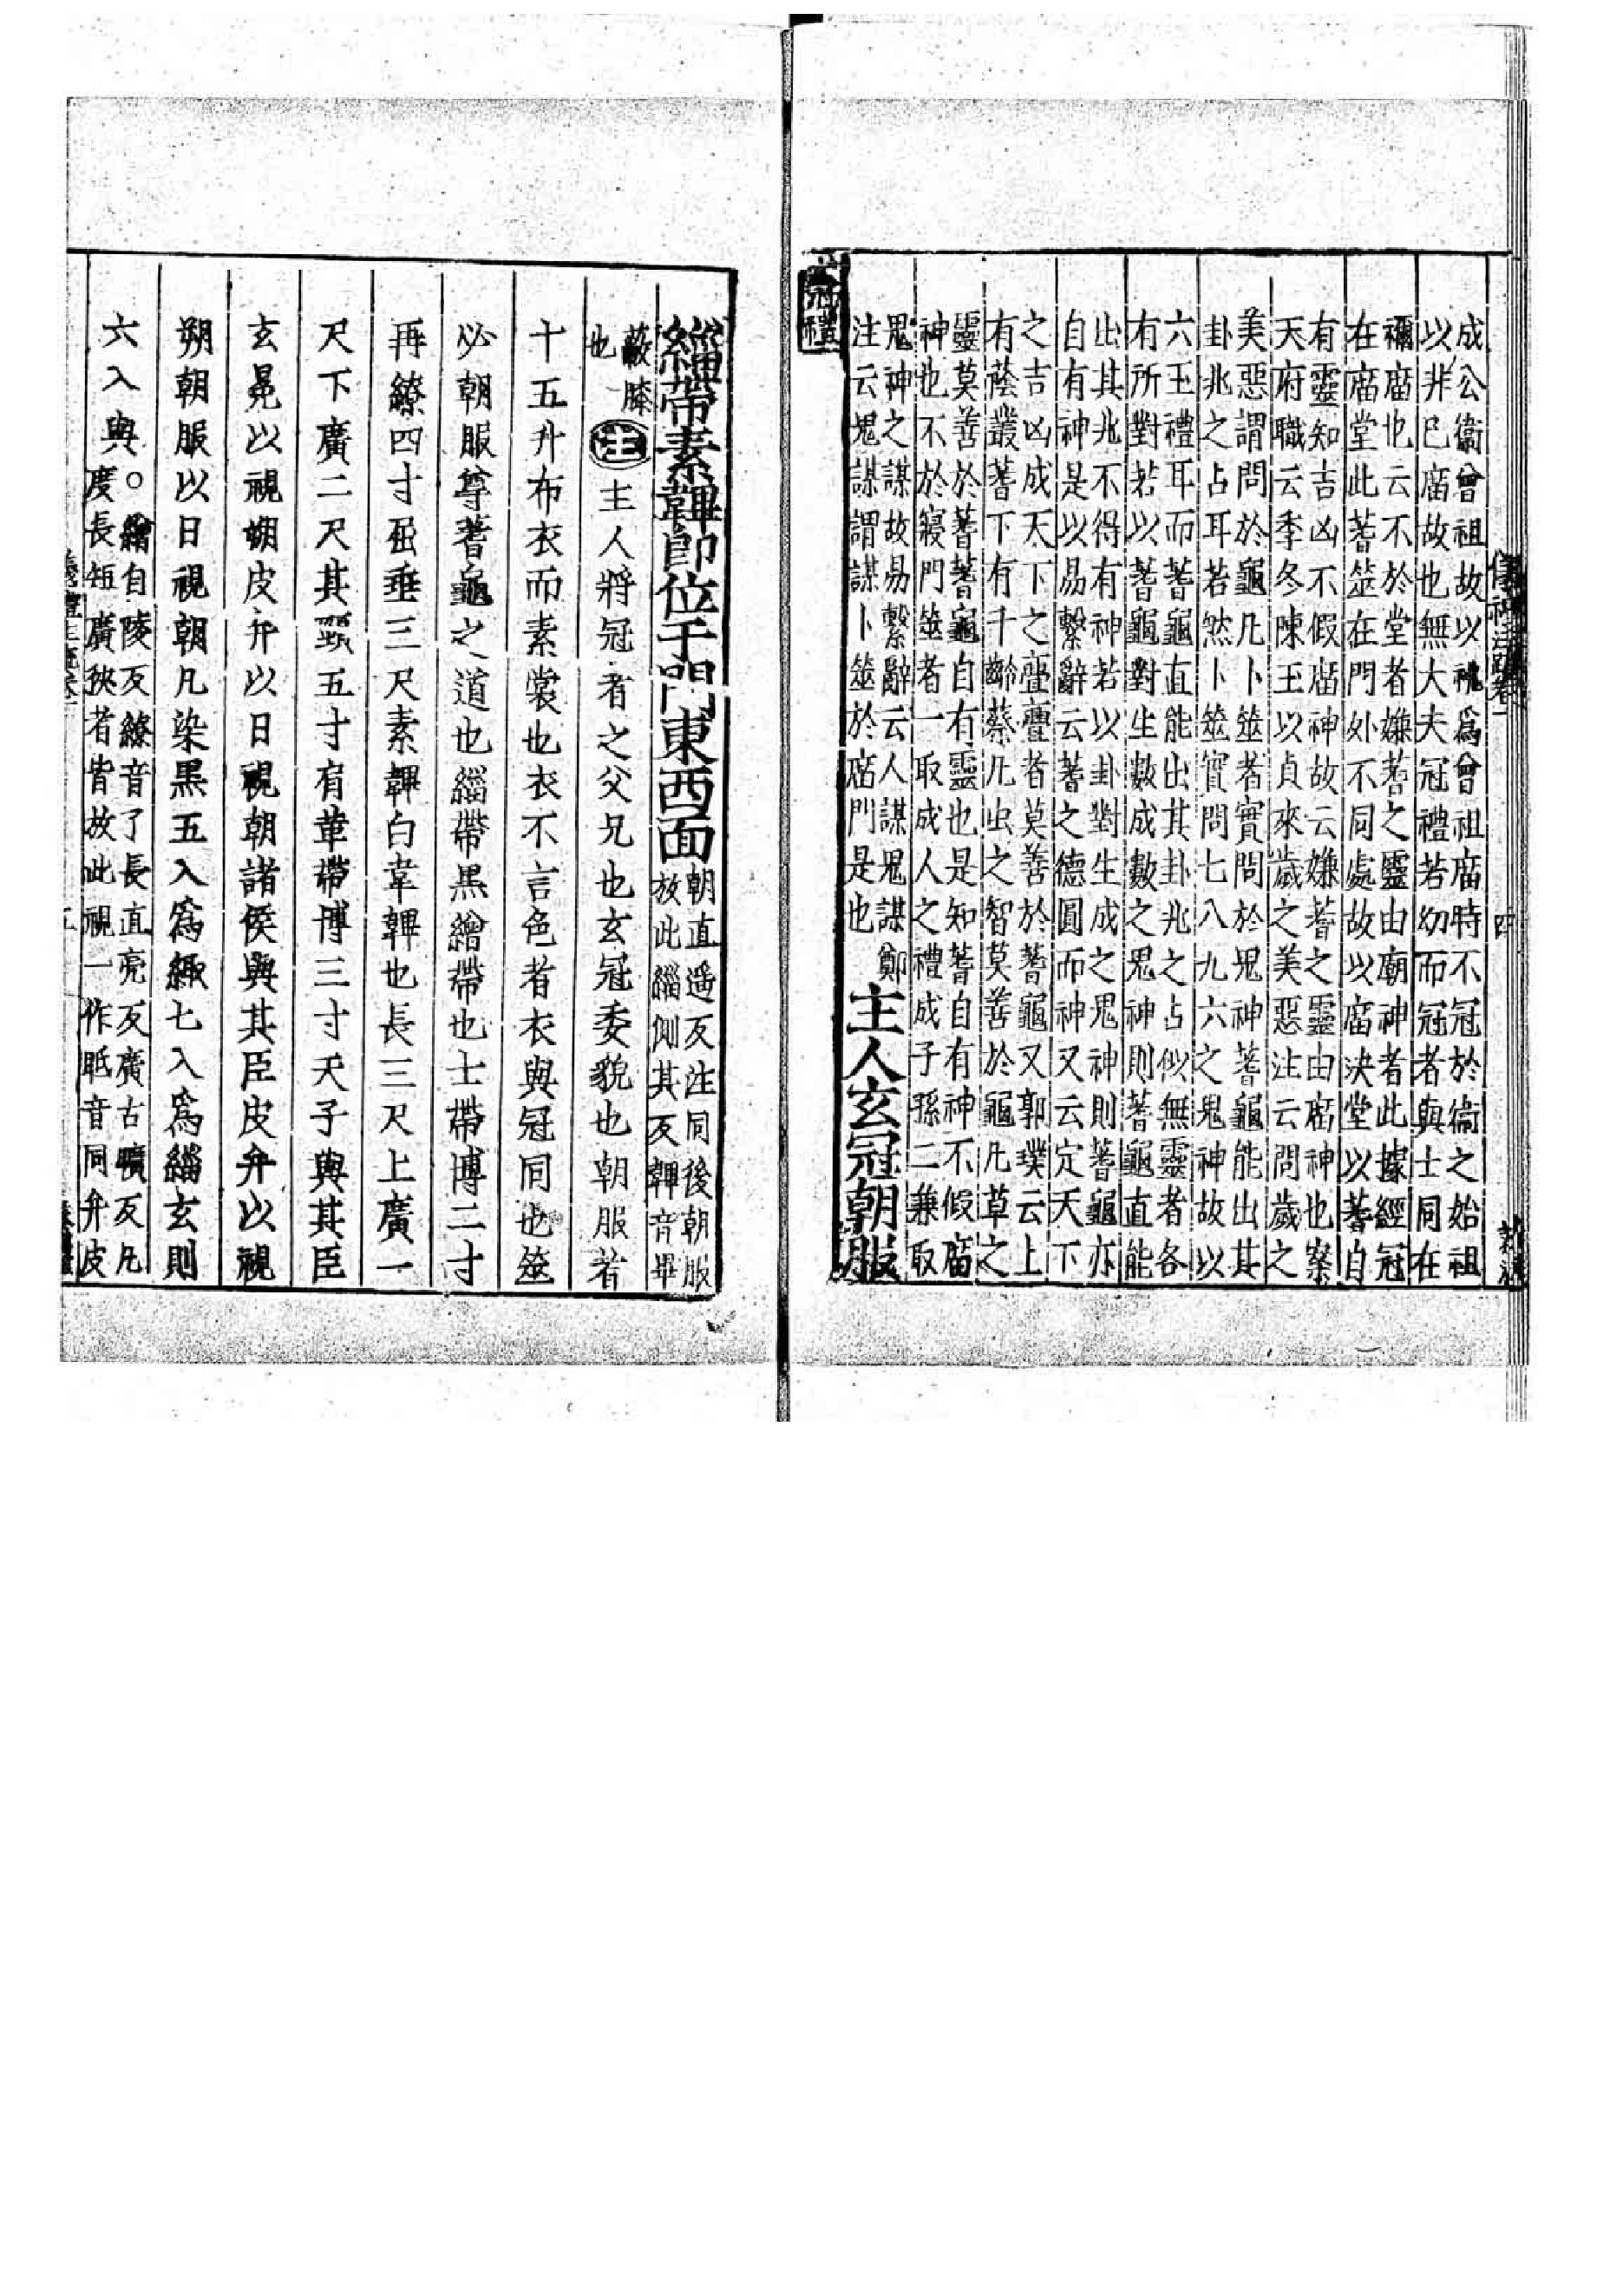 儀禮注疏卷一　四
成公衞曾祖故以祧爲曾祖庿時不冠於衞之始祖
以非已庿故也無大夫冠禮若幼而冠者與士同在
禰庿也云不於堂者嫌蓍之靈由廟神者此據經冠
在庿堂此蓍筮在門外不同處故以庿决堂以蓍自
有靈知吉凶不假庿神故云嫌蓍之靈由庿神也案
天府職云季冬陳玉以貞來歲之美惡注云問歲之
美惡謂問於龜凡卜筮者實問於鬼神蓍龜能出其
卦兆之占耳若然卜筮實問七八九六之鬼神故以
六玉禮耳而蓍龜直能出其卦兆之占似無靈者各
有所對若以蓍龜對生數成數之鬼神則蓍龜直能
出其兆不得有神若以卦對生成之鬼神則蓍龜亦
自有神是以易繫辭云蓍之德圓而神又云定天下
之吉凶成天下之亹亹者莫善於蓍龜又郭璞云上
有蔭叢蓍下有千齡蔡凡虫之智莫善於龜凡草之
靈莫善於蓍蓍龜自有靈也是知蓍自有神不假庿
神也不於寢門筮者一取成人之禮成子孫二兼取
鬼神之謀故易繫辭云人謀鬼謀鄭
注云鬼謀謂謀卜筮於庿門是也
主人玄冠朝服
冠禮
緇帶素韠卽位于門東西面
朝直遥反注同後朝服
放此緇側其反韠音畢
蔽膝
也
注主人將冠者之父兄也玄冠委貌也朝服者
十五升布衣而素裳也衣不言色者衣與冠同也筮
必朝服尊蓍龜之道也緇帶黑繒帶也士帶博二寸
再繚四寸屈垂三尺素韠白韋韠也長三尺上廣一
尺下廣二尺其頸五寸肩革帶博三寸天子與其臣
玄冕以視朔皮弁以日視朝諸侯與其臣皮弁以視
朔朝服以日視朝凡染黑五入爲緅七入爲緇玄則
六入與○
繒自陵反繚音了長直亮反廣古曠反凡
度長短廣狹者皆放此視一作眂音同弁皮